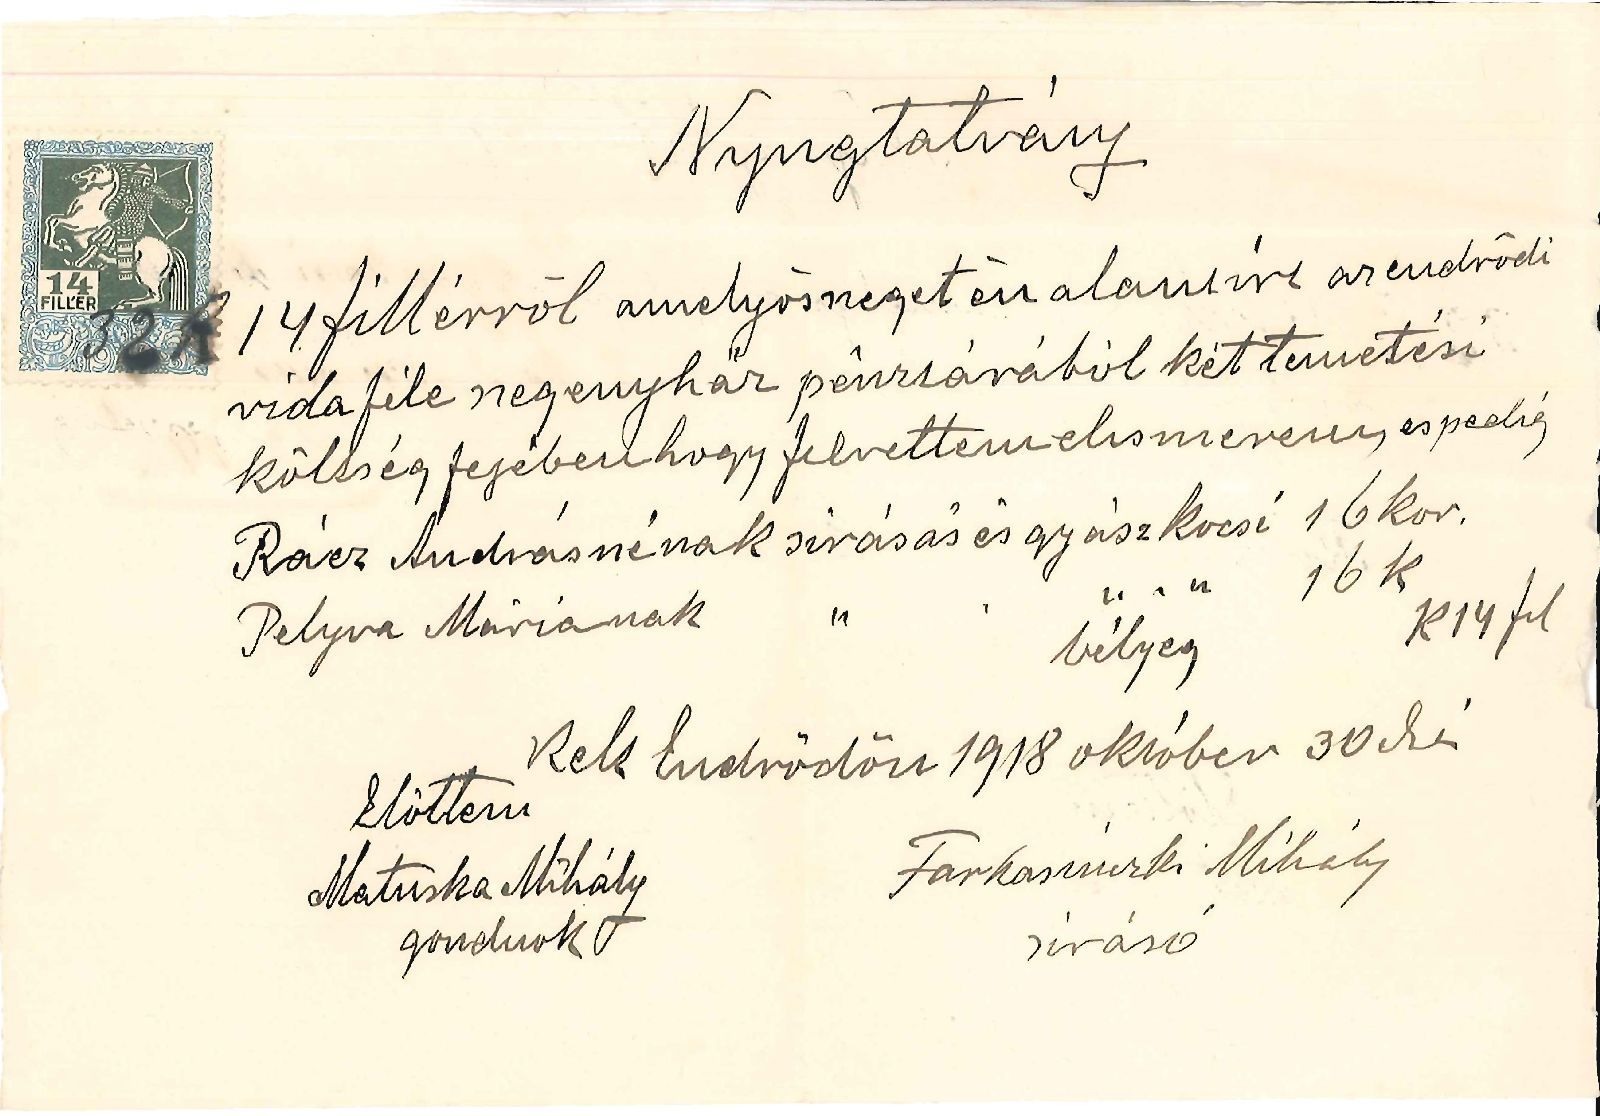 Nyugtatvány
14 FILLÉR
32 K
14 fillérről amelyösneget èn alant írt az endrődi
vida féle negenyház pénztárából két temetési
költség fejében hogy felvettem elismerem, es pedig
Rácz Andrásnénak sirásás és gyász kocsi 16 kor.
Pelyva Máriának " " " 16 k
bélyeg K 14 fil
Kelt Endrődön 1918 október 30 dká
Előttem
Matuska Mihály
gondnok
Farkasinszki Mihály
sirásó